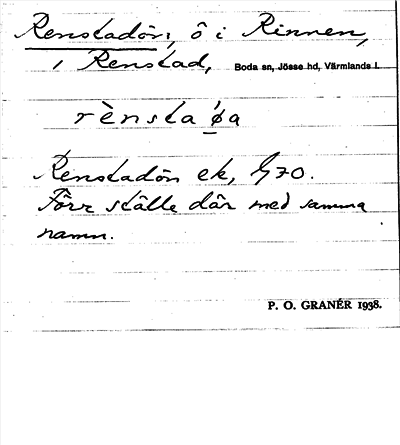 Renstadön, ö i Rinnen,
i Renstad, Boda sn, Jösse hd, Värmlands l.
rènsta ǿa
Renstadön ek, G70.
Förr ställe där med samma
namn.
P. O. GRANÉR 1938.